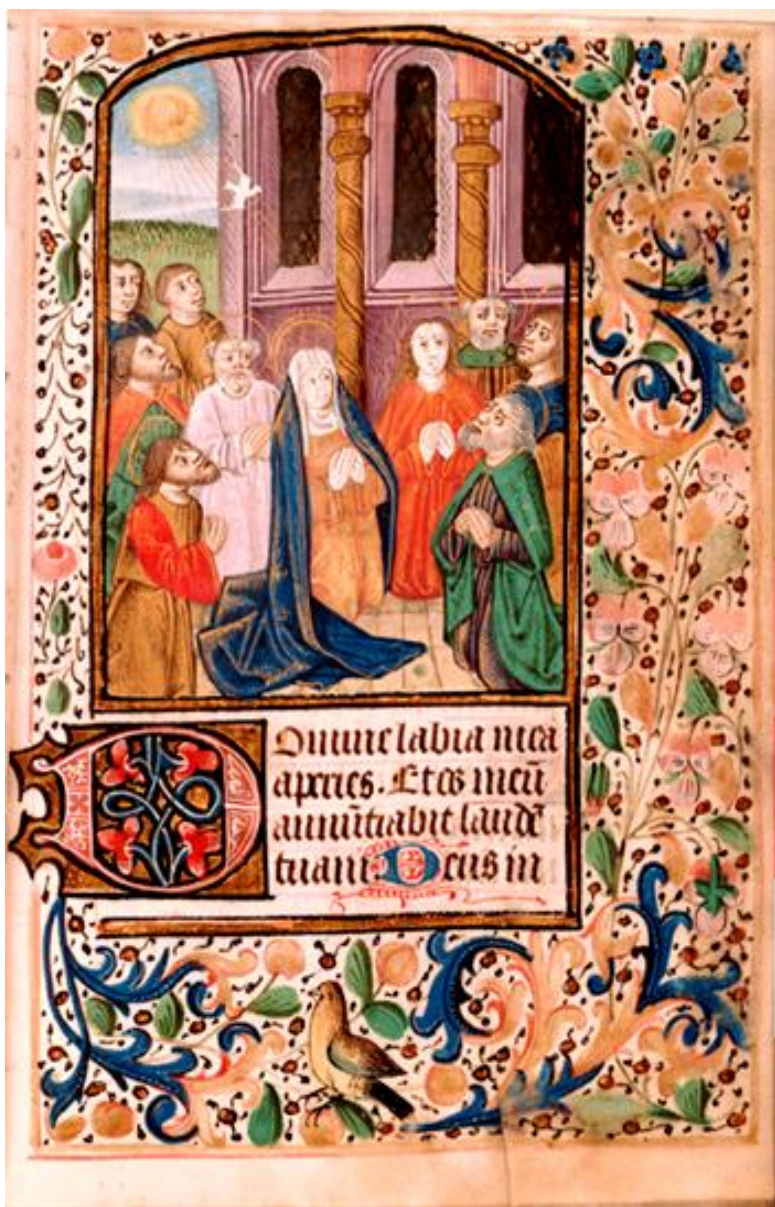 Domine labia mea
aperies. Et os meū
annūtiabit laudē
tuam Deus in